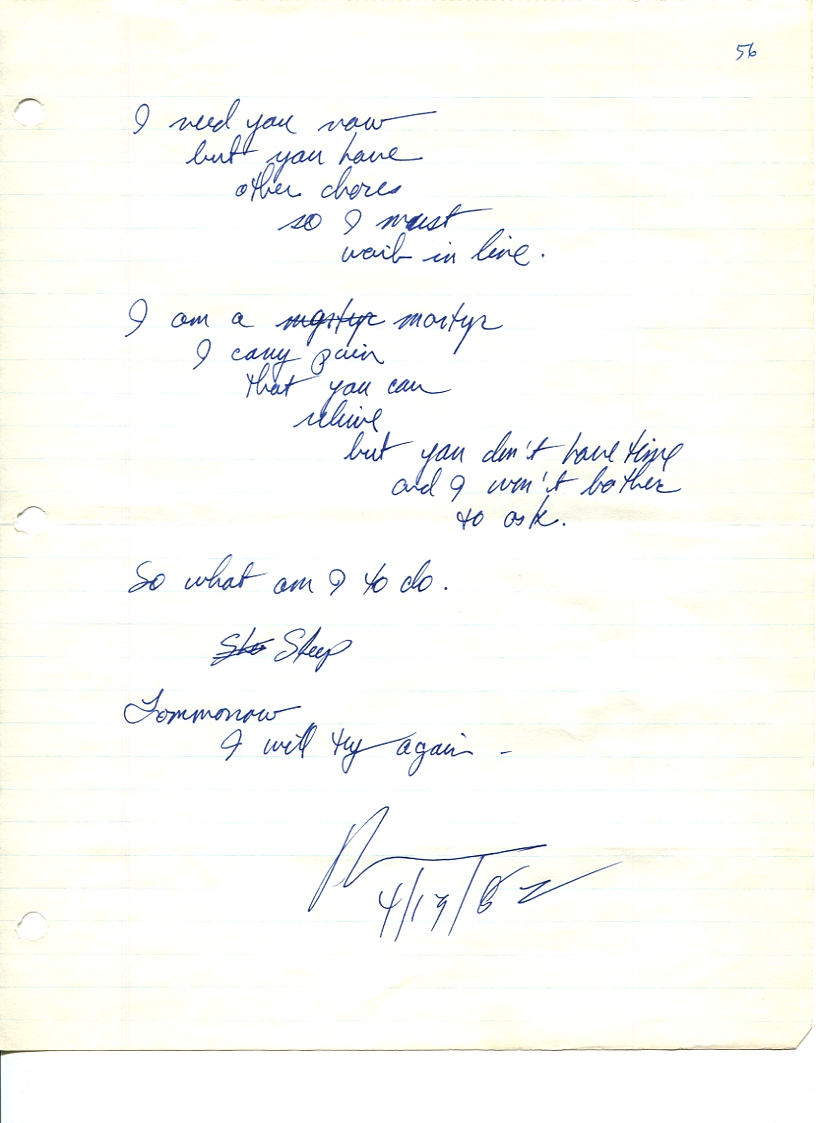 56
I need you now
but you have
other chores
so I must
wait in line.
I am a martyr martyr
I carry pain
that you can
relieve
but you don't have time
and I won't bother
to ask.
So what am I to do.
Sle Sleep
Tommorrow
I will try again -
4/19/82